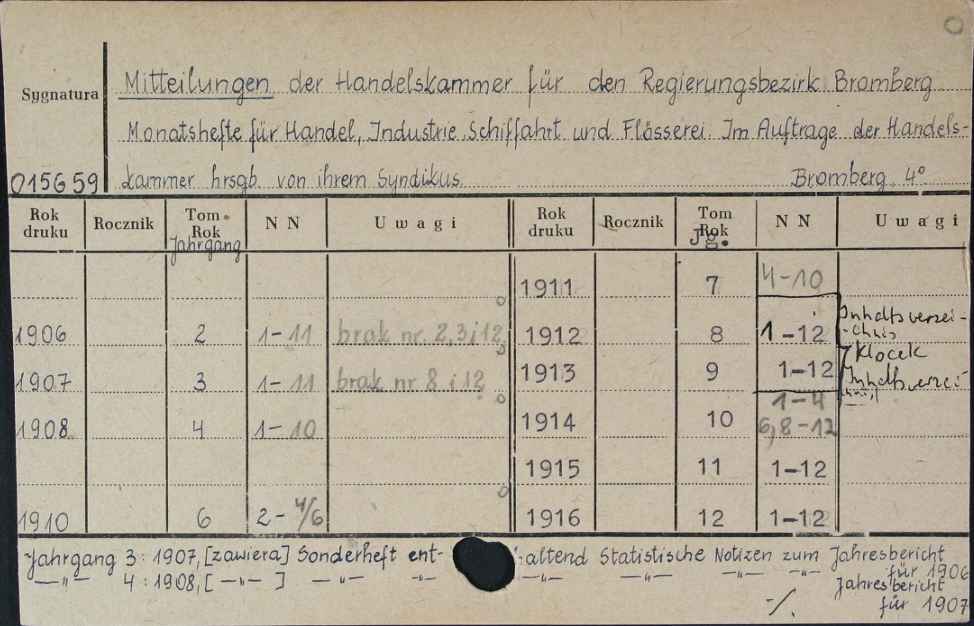 Sygnatura
015659
Mitteilungen der Handelskammer für den Regierungsbezirk Bromberg
Monatshefte für Handel, Industrie, Schiffahrt und Flösserei. Im Auftrage der Handels-
kammer hrsgb. von ihrem Syndikus. Bromberg 4°
Rok druku Rocznik Tom Rok Jahrgang NN Uwagi
1906 2 1-11 brak nr. 2,3 i 12
1907 3 1-11 brak nr 8 i 12
1908 4 1-10
1910 6 2-4/6
Rok druku Rocznik Tom Rok Jg. NN Uwagi
1911 7 4-10
1912 8 1-12 Inhaltsverzei-
chnis
1913 9 1-12 klocek
Inhaltsverzei-
chnis
1914 10 1-4
6,8-12
1915 11 1-12
1916 12 1-12
Jahrgang 3: 1907, [zawiera] Sonderheft ent- haltend Statistische Notizen zum Jahresbericht
für 1906
—"— 4: 1908, [—"—] —"— —"— —"— —"— —"— —"— Jahresbericht
für 1907
-/.